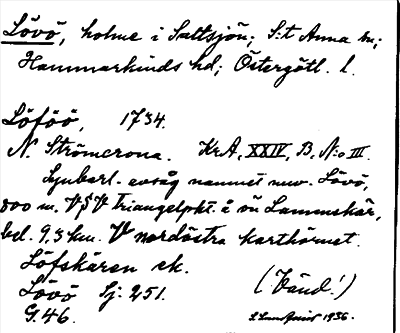 Lövö, holme i Saltsjön; S:t Anna sn;
Hammarkinds hd; Östergötl. l.
Löföö, 1734.
N. Strömcrona. KrA, XXIV, B, N:o III.
Sjukart. avsåg namnet nuv. Lövö,
800 m. VSV Triangelpkt. å ön Lammskär,
bel. 9,3 km. V nordöstra karthörnet.
Löfskären ek.
Lövö Sj: 251. (Vänd!)
G. 46. 1936.